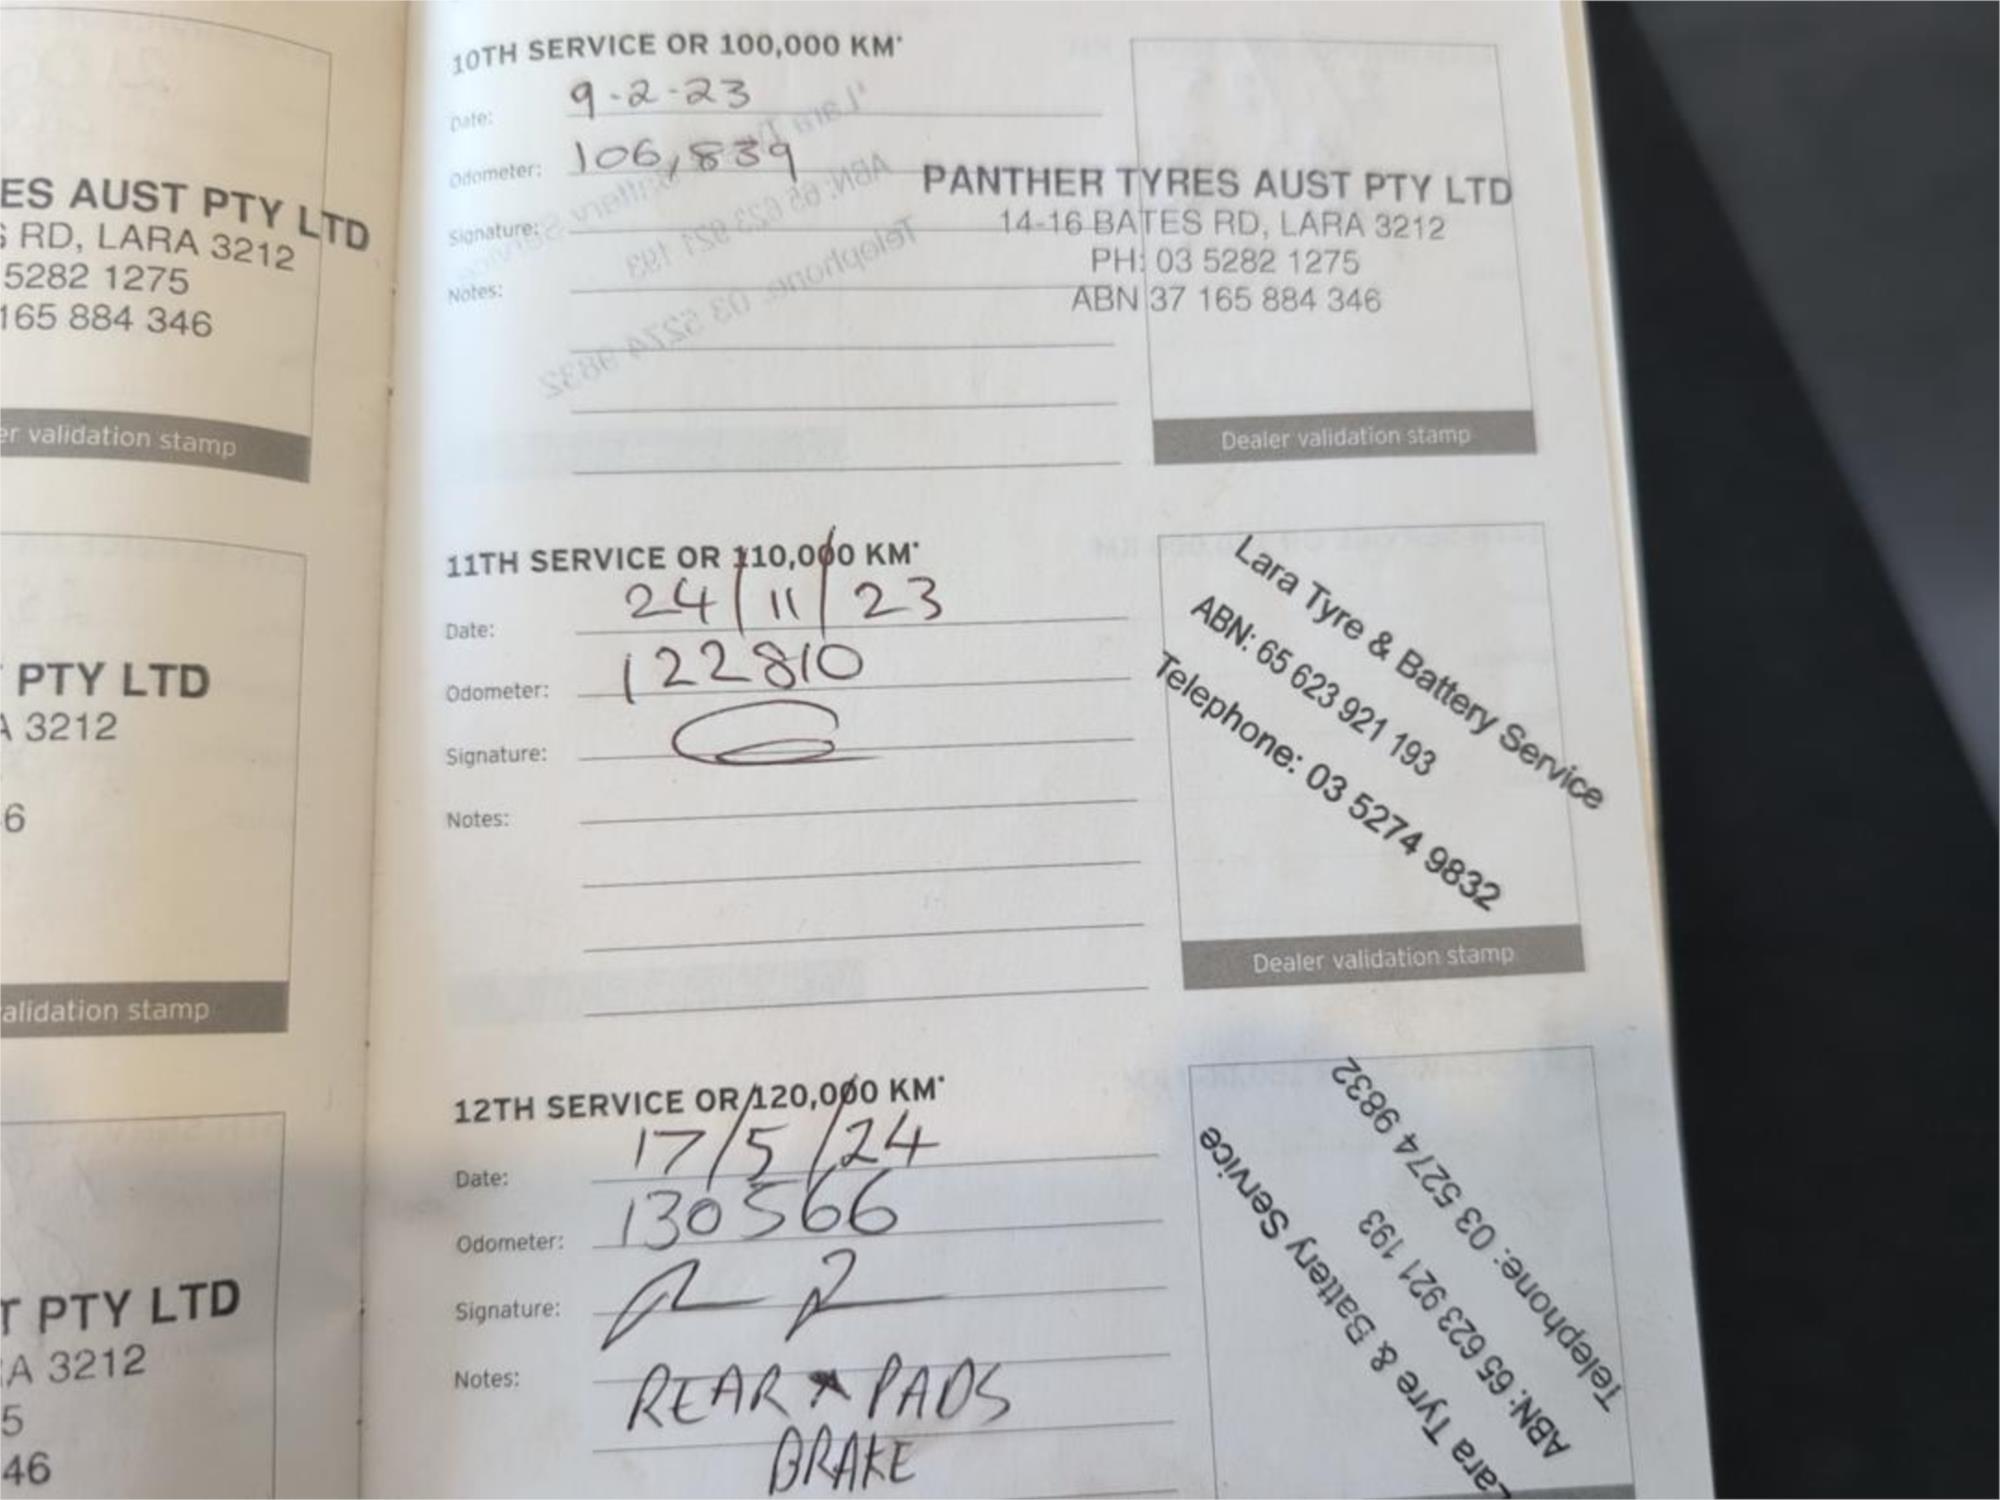 ES AUST PTY LTD
RD, LARA 3212
5282 1275
165 884 346
er validation stamp
PTY LTD
A 3212
6
alidation stamp
T PTY LTD
A 3212
5
46
10TH SERVICE OR 100,000 KM*
Date: 9-2-23
Odometer: 106,839
Signature:
Notes:
PANTHER TYRES AUST PTY LTD
14-16 BATES RD, LARA 3212
PH: 03 5282 1275
ABN 37 165 884 346
Dealer validation stamp
11TH SERVICE OR 110,000 KM*
Date: 24/11/23
Odometer: 122810
Signature:
Notes:
Lara Tyre & Battery Service
ABN: 65 623 921 193
Telephone: 03 5274 9832
Dealer validation stamp
12TH SERVICE OR 120,000 KM*
Date: 17/5/24
Odometer: 130566
Signature:
Notes: REAR PADS
BRAKE
Lara Tyre & Battery Service
ABN: 65 623 921 193
Telephone: 03 5274 9832